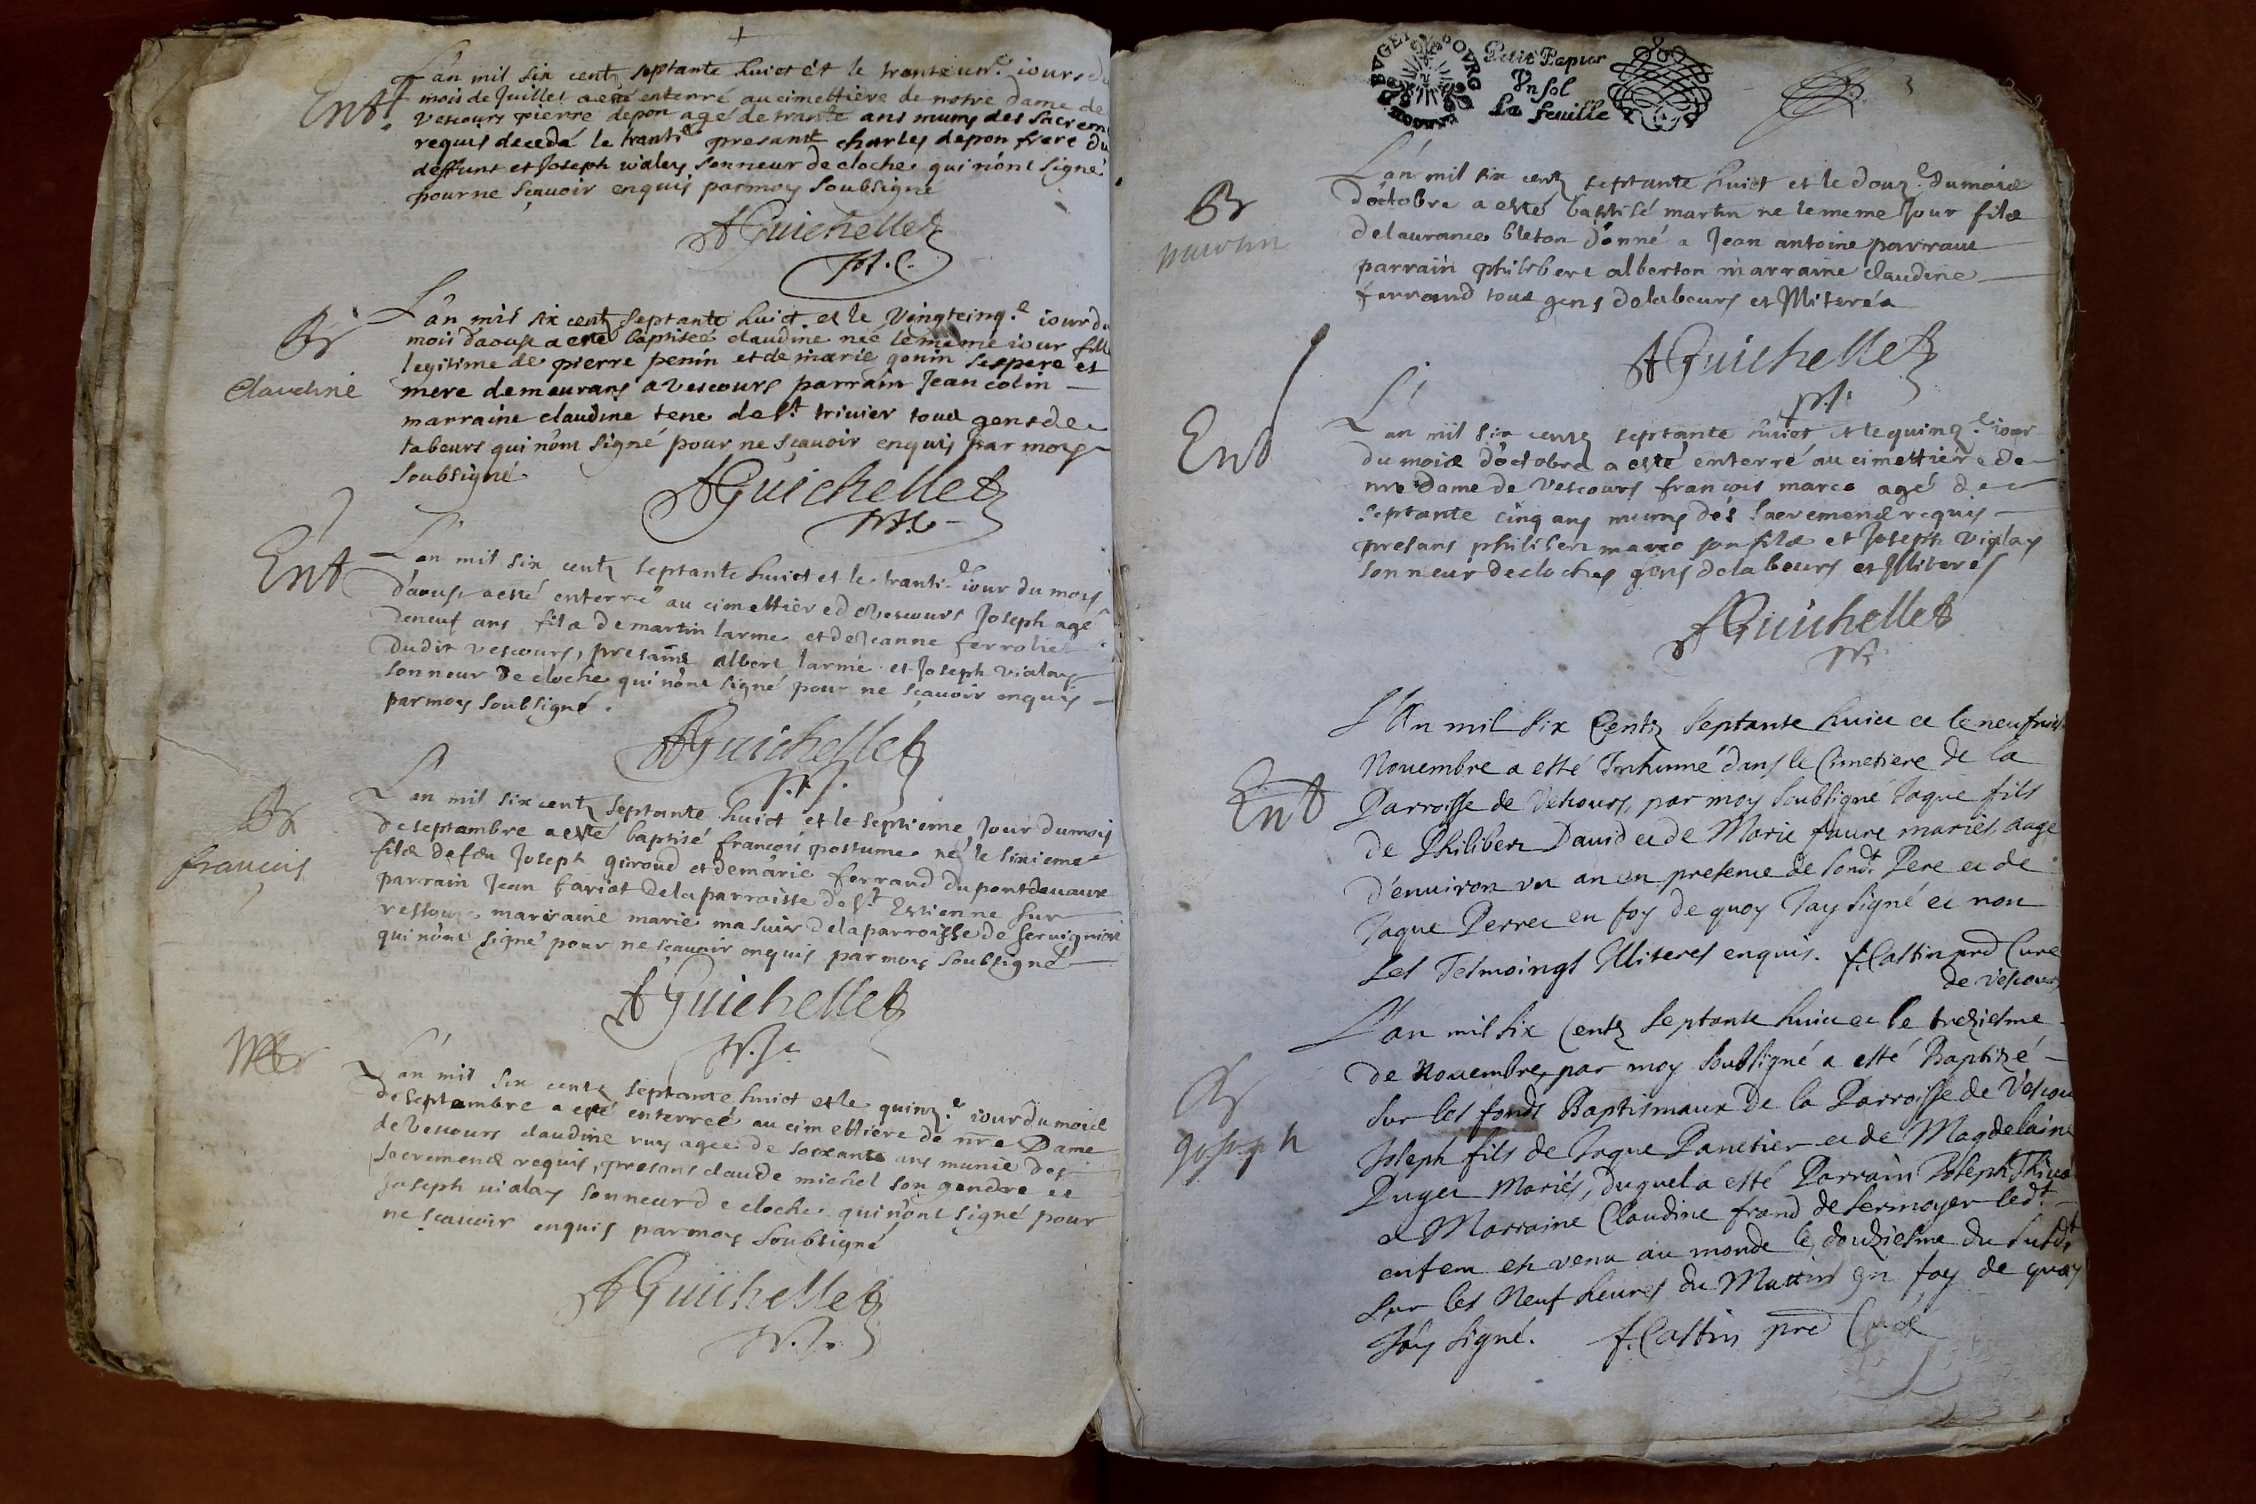 Ent
L'an mil six centz septante huict et le trante un.e iour du
mois de Juillet a esté enterré au cimettiere de notre dame de
Vescours pierre depon agé de trante ans muny des sacrem
requis decedé le tranti.e presant charles depon frere du
deffunt et Joseph vialay sonneur de cloche qui n'ont signé
pour ne sçavoir enquis par moy soubsigné
AGuichellet
Br
Claudine
L'an mil six centz septante huict et le Vingtcinq.e iour du
mois d'aoust a esté baptiseé claudine née le meme iour fille
legitime de pierre penin et de marie gonin ses pere et
mere demeurans a Vescours parrain Jean colin
marraine claudine tene de St. trivier tous gens de
labeurs qui n'ont signé pour ne sçavoir enquis par moy
soubsigné
AGuichellet
Ent
L'an mil six centz septante huict et le tranti.e iour du moys
d'aoust a esté enterré au cimettiere de Vescours Joseph agé
de neuf ans fils de martin larme et de Jeanne ferroliet
dudit vescours, presant albert larme et Joseph vialay
sonneur de cloche qui n'ont signé pour ne sçavoir enquis
par moy soubsigné.
AGuichellet
Br
francois
L'an mil six centz septante huict et le septieme Jour du mois
de septambre a esté baptisé francois postume né le sixieme
fils de feu Joseph giroud et de marie ferrand du pontdevaux
parrain Jean fariot de la parroisse de St. Estienne sur
ressouze marraine marie masuir de la parroisse de servignia
qui n'ont signé pour ne sçavoir enquis par moy soubsigné
AGuichellet
L'an mil six centz septante huict et le quinz.e iour du mois
de Septembre a esté enterreé au cimettiere de nre Dame
de Vescours claudine ruy agee de soixante ans munie des
sacremens requis, presans claude michel son gendre et
Joseph vialay sonneur de cloche qui n'ont signé pour
ne sçavoir enquis par moy soubsigné
AGuichellet
BUGEY BOURG
Petit Papier
Un sol
La feuille
3
Br
martin
L'an mil six centz septante huict et le douz.e du mois
d'octobre a esté baptisé martin né le meme Jour fils
de laurance bleton donné a Jean antoine parraut
parrain philibert alberton marraine claudine
ferrand tous gens de labeurs et Illiterés
AGuichellet
Ent
L'an mil six centz septante huict et le quinz.e iour
du mois d'octobre a esté enterré au cimettiere de
nre Dame de Vescours francois marco agé de
septante cinq ans muny des sacremens requis
presans philibert marco son fils et Joseph vialay
sonneur de cloches gens de labeurs et Illiterés
AGuichellet
Ent
L'An mil six Centz septante huict et le neufvie
Novembre a esté Inhumé dans le Cimetiere de la
Parroisse de Vescours, par moy soubsigné Jaque fils
de Philibert David et de Marie faure mariés aagé
d'environ un an en presence de sondt Pere et de
Jaque Perret en foy de quoy J'ay signé et non
Les Tesmoingts Illiteres enquis. f. Castin pre Curé
de Vescours
Br
Joseph
L'an mil six Centz septante huict et le treziesme
de Novembre, par moy soubsigné a esté Baptizé
sur les fonds Baptismaux de la Parroisse de Vescou
Joseph fils de Jaque Panetier et de Magdelaine
Puget Mariés, duquel a esté Parrain Joseph
et Marraine Claudine frand de sermoyer ledt.
enfent est venu au monde le douziesme du susdt
sur les Neuf heures du Mattin en foy de quoy
J'ay signé. f. Castin pre Curé